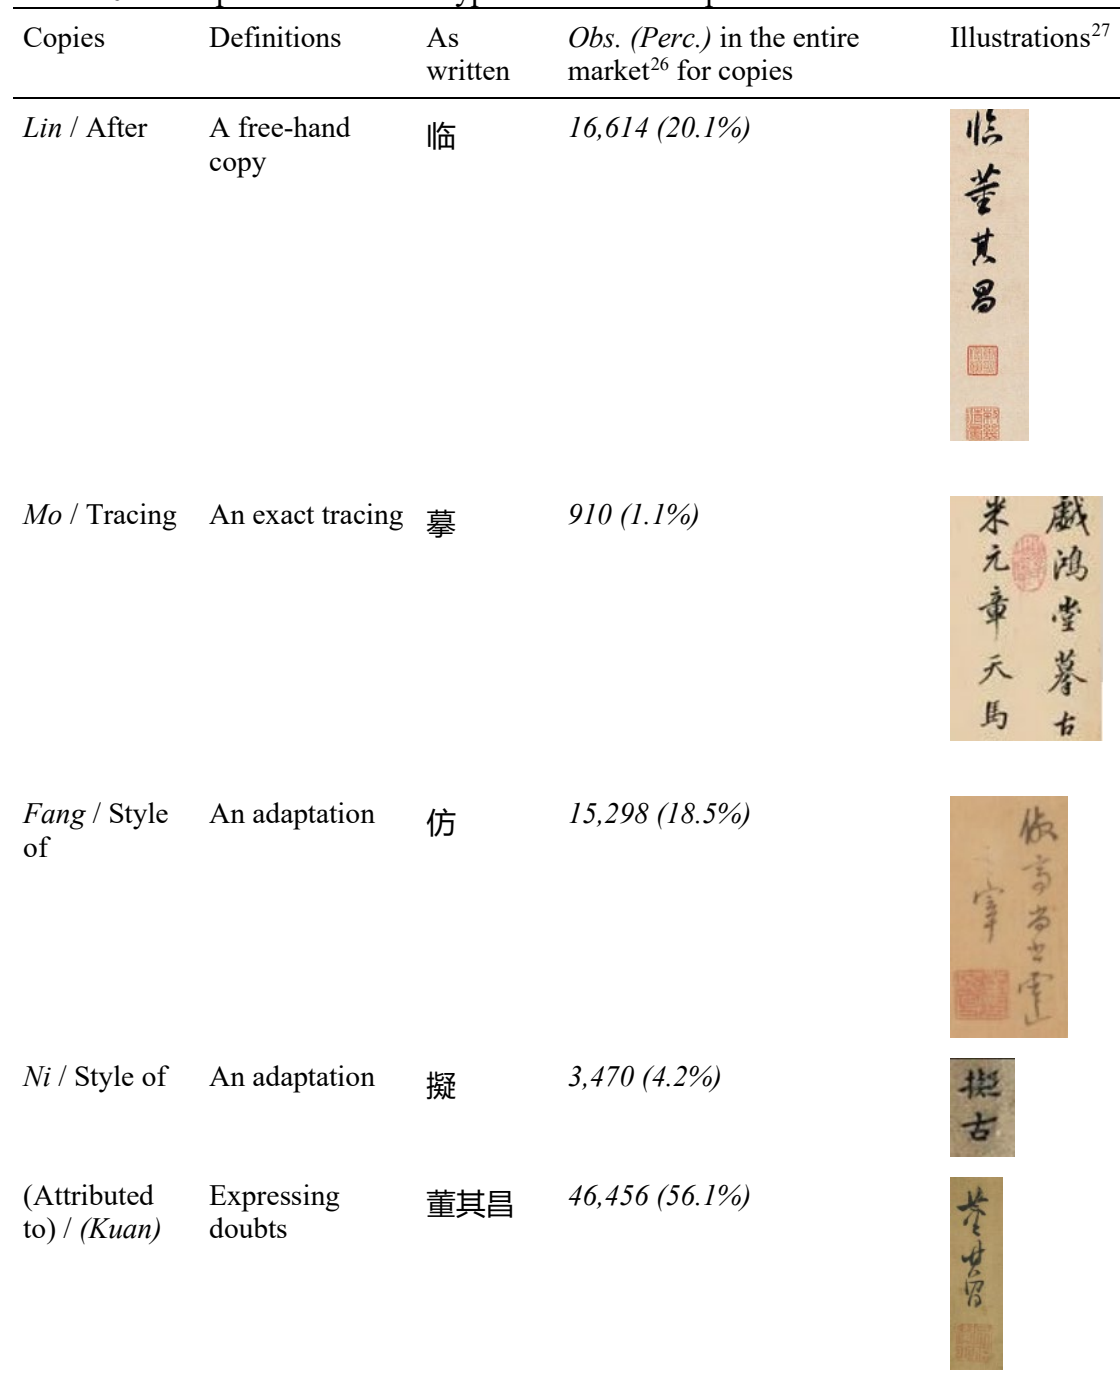 Copies Definitions As written Obs. (Perc.) in the entire market26 for copies Illustrations27
Lin / After A free-hand copy 临 16,614 (20.1%)
臨董其昌
Mo / Tracing An exact tracing 摹 910 (1.1%)
戲鴻堂摹古
米元章天馬
Fang / Style of An adaptation 仿 15,298 (18.5%)
倣高尚書雲山
Ni / Style of An adaptation 擬 3,470 (4.2%)
擬古
(Attributed to) / (Kuan) Expressing doubts 董其昌 46,456 (56.1%)
董其昌